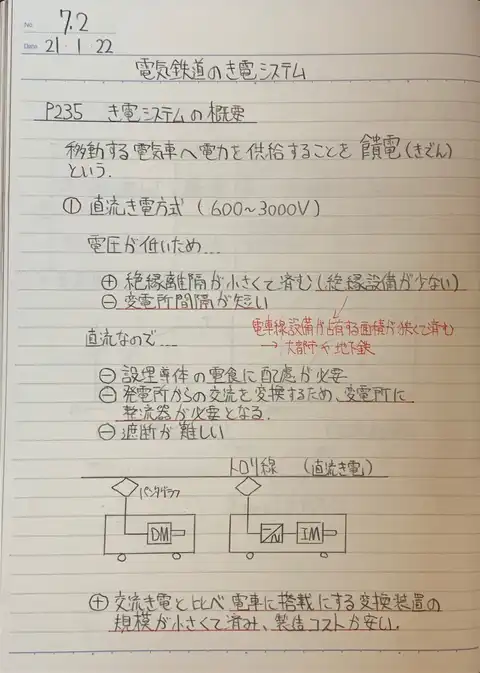 No. 7.2
Date 21・1・22
電気鉄道のき電システム
P235 き電システムの概要
移動する電気車へ電力を供給することを 饋電(きでん)
という.
① 直流き電方式 (600~3000V)
電圧が低いため...
⊕ 絶縁離隔が小さくて済む(絶縁設備が少ない)
⊖ 変電所間隔が短い
電車線設備が占有する面積が狭くて済む
→ 大都市や地下鉄
直流なので...
⊖ 設埋導体の電食に配慮が必要
⊖ 発電所からの交流を変換するため、変電所に
整流器が必要となる.
⊖ 遮断が難しい
トロリ線 (直流き電)
パンタグラフ
DM
IM
⊕ 交流き電と比べ電車に搭載にする変換装置の
規模が小さくて済み、製造コストが安い.